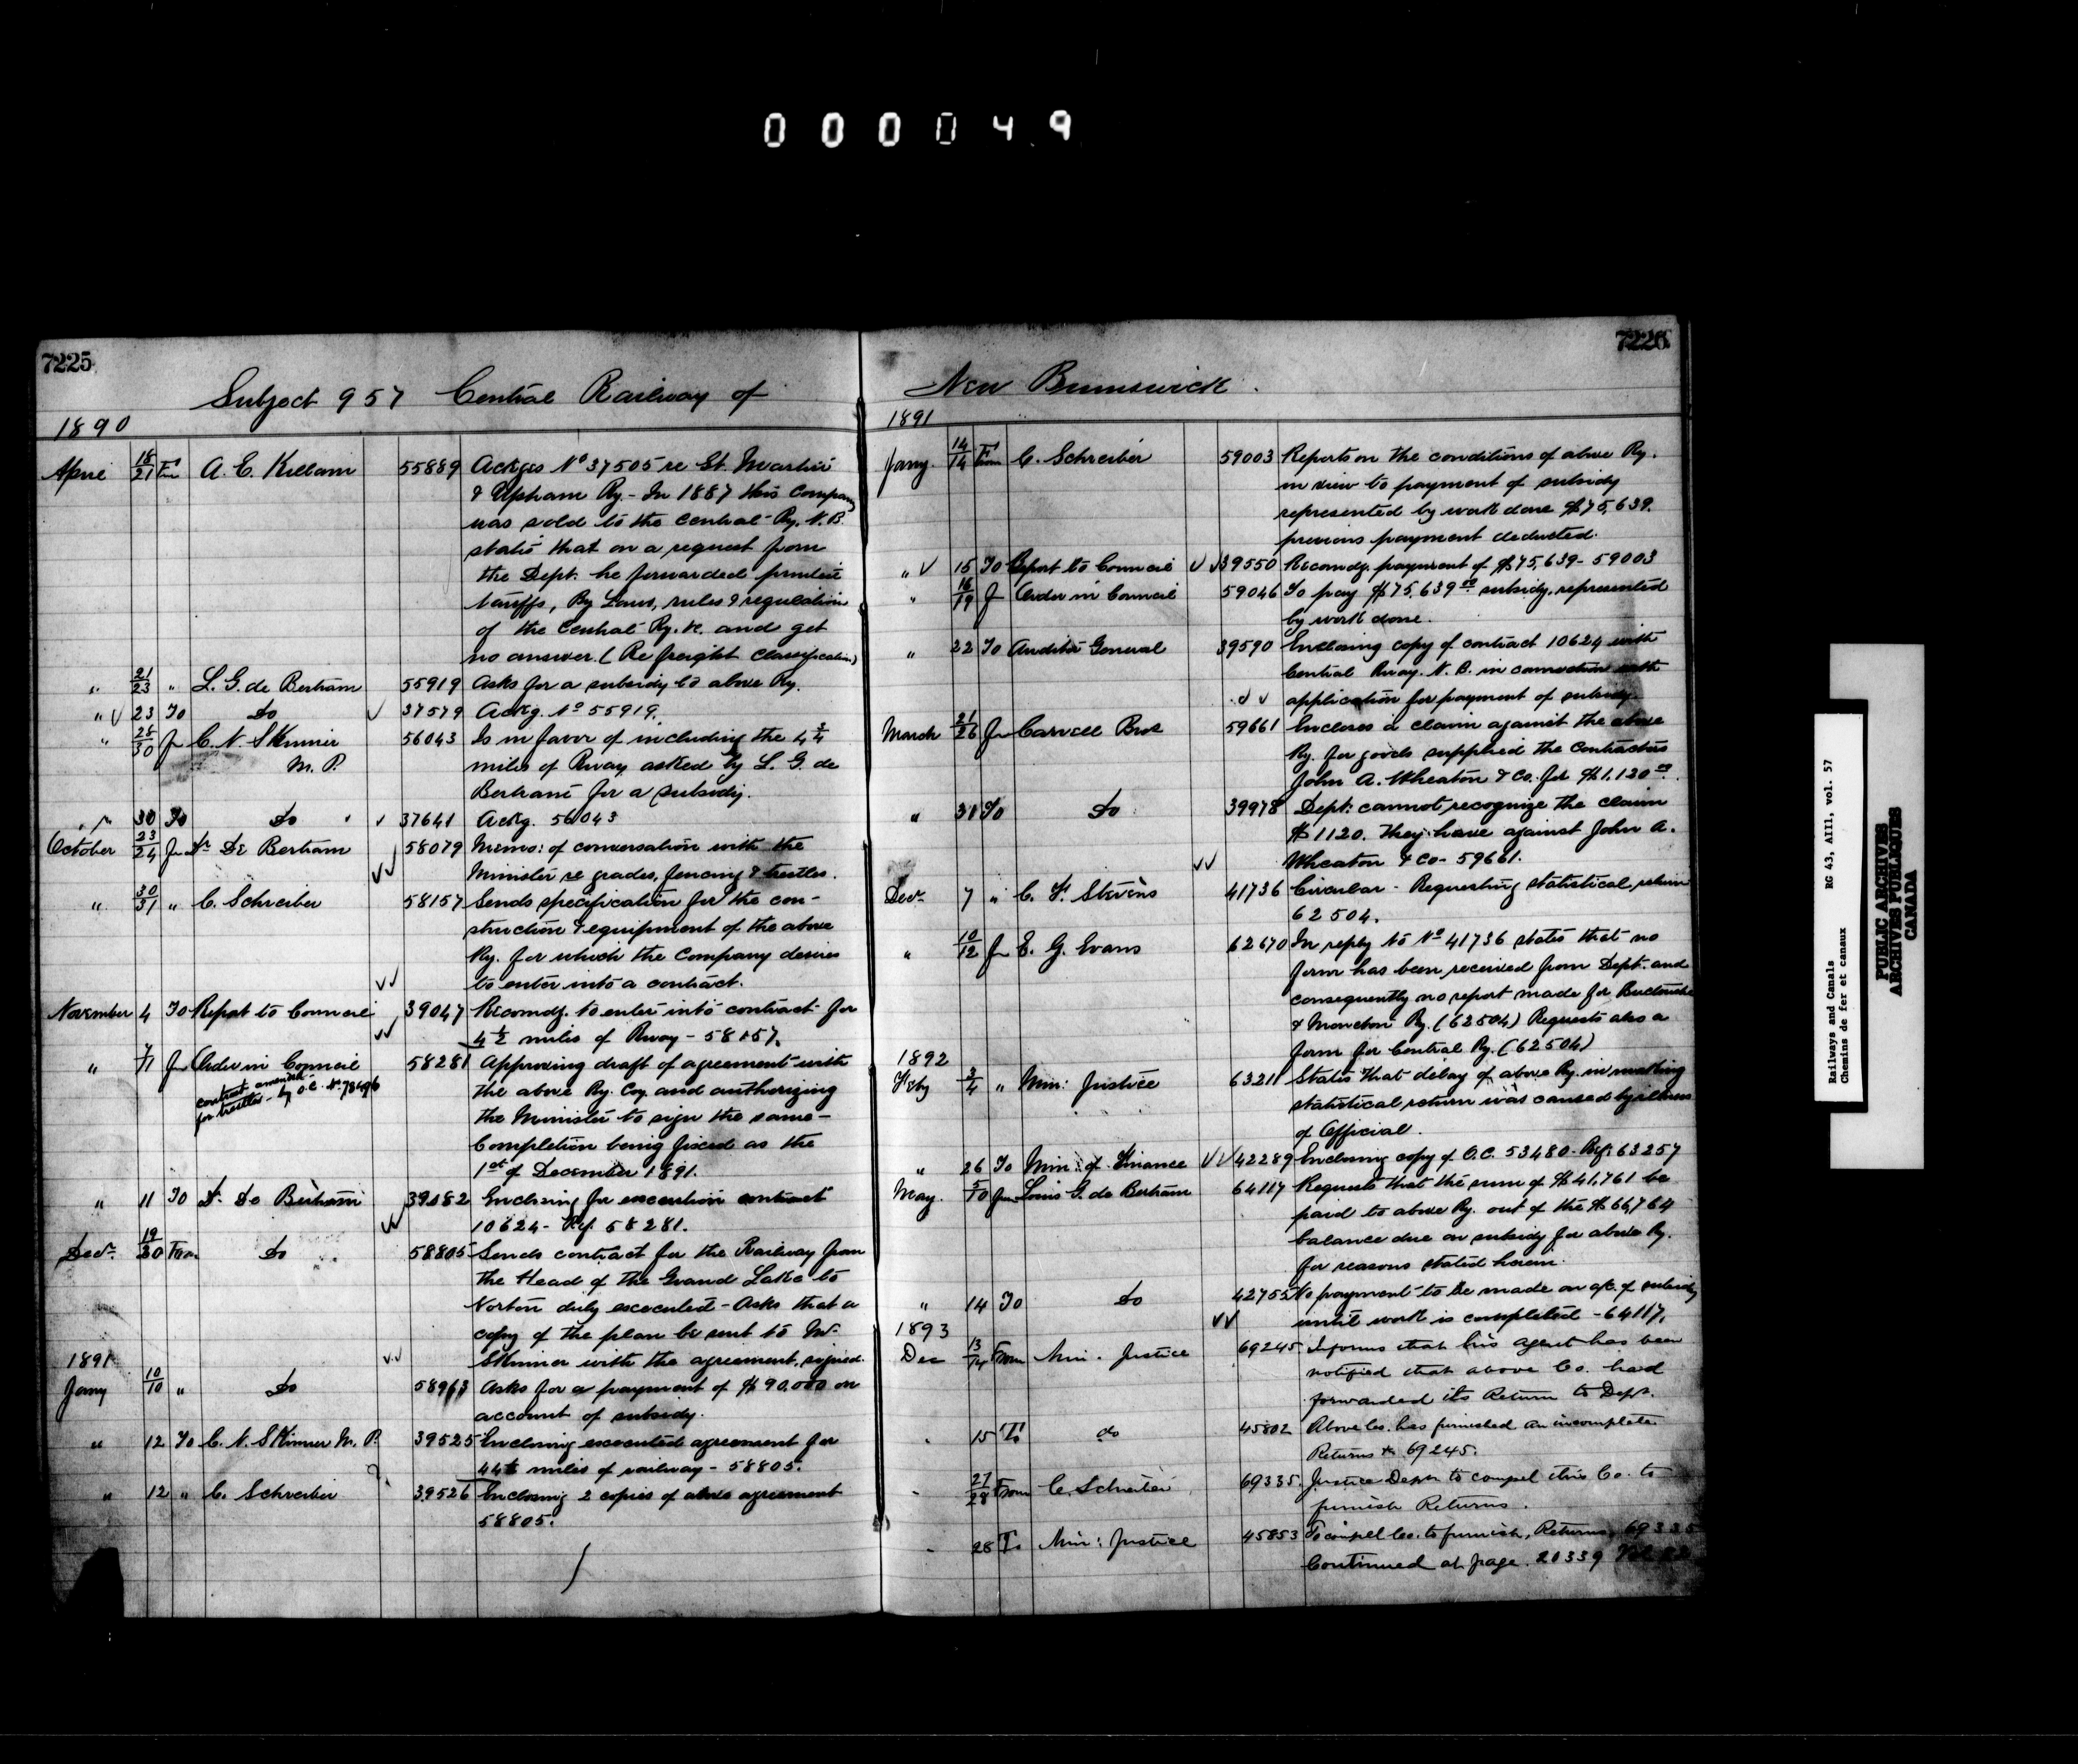 000049
7225
Subject 957 Central Railway of
1890
April 18/21 Fm A. E. Killam 55889 Ackges No 37505 re St. Martins
& Upham Ry. - In 1887 this Company
was sold to the Central Ry. N.B.
states that on a request from
the Dept. he forwarded printed
tariffs, By Laws, rules & regulations
of the Central Ry. &c. and get
no answer (Re freight classification)
" 21/23 " L. G. de Bertram 55919 Asks for a subsidy to above Ry.
" 23 To Do 37579 Ackg. No 55919.
" 28/30 fm C. N. Skinner 56043 Is in favor of including the 4 3/4
M. P. miles of Rway asked by L. G. de
Bertram for a subsidy.
" 30 To Do 37641 Ackg. 56043
October 23/24 fm Dr De Bertram 58079 Memo: of conversation with the
Minister re grades, fencing & trestles.
" 30/31 " C. Schreiber 58157 Sends specification for the con-
struction & equipment of the above
Ry. for which the Company desires
to enter into a contract.
November 4 To Report to Council 39047 Recomdg. to enter into contract for
4 1/2 miles of Rway - 58157.
" 7/11 fm Order in Council 58281 Approving draft of agreement with
contract amended
for trestles - by O.C. No. 78496
the above Ry. Coy. and authorizing
the Minister to sign the same -
Completion being fixed as the
1st of December 1891.
" 11 To Dr. De Bertram 39082 Enclosing for execution contract
10624 - Ref. 58281.
Decr. 19/30 From Do 58805 Sends contract for the Railway from
the Head of the Grand Lake to
Norton duly executed - Asks that a
copy of the plan be sent to Mr.
1891 Skinner with the agreement, signed.
Jany 10/10 " Do 58963 Asks for a payment of $90.000 on
account of subsidy.
" 12 To C. N. Skinner M. P. 39525 Enclosing executed agreement for
miles of railway - 58805.
" 12 " C. Schreiber 39526 Enclosing 2 copies of above agreement
58805.
7226
New Brunswick.
1891
Jany. 14/14 From C. Schreiber 59003 Reports on the conditions of above Ry.
in view to payment of subsidy
represented by work done $75,639.
previous payment deducted.
" 15 To Report to Council 39550 Recomdg. payment of $75,639 - 59003
" 16/19 f Order in Council 59046 To pay $75,639 00 subsidy, represented
by work done.
" 22 To Auditor General 39590 Enclosing copy of contract 10624 with
Central Rway. N. B. in connection with
application for payment of subsidy.
March 21/26 fm Carvell Bros 59661 Encloses a claim against the above
Ry. for goods supplied the contractors
John A. Wheaton & Co. for $1.120 00.
" 31 To Do 39978 Dept: cannot recognize the claim
$1120. they have against John A.
Wheaton & Co - 59661.
Decr. 7 " C. F. Stevens 41736 Circular - Requesting statistical return
62504.
" 10/12 fm E. G. Evans 62670 In reply to No 41736 states that no
form has been received from Dept. and
consequently no report made for Buctouche
& Moncton Ry. (62504) Requests also a
1892 form for Central Ry. (62504)
Feby 3/4 " Min: Justice 63211 States that delay of above Ry. in making
statistical return was caused by illness
of Official.
" 26 To Min: of Finance 42289 Enclosing copy of O.C. 53480 - Ref: 63257
May. 5/10 fm Louis G. de Bertram 64117 Requests that the sum of $41,761 be
paid to above Ry. out of the $66,764
balance due on subsidy for above Ry.
for reasons stated herein.
" 14 To Do 42755 No payment to be made on a/c. of subsidy
1893 until work is completed - 64117.
Dec 13/14 From Min. Justice 69245 Informs that his agent has been
notified that above Co. had
forwarded its Return to Dept.
" 15 To do 45802 Above Co. has furnished an incomplete
Returns 69245.
" 27/28 From C. Schreiber 69335 Justice Dept. to compel this Co. to
furnish Returns.
" 28 To Min: Justice 45853 To compel Co. to furnish, Returns, 69335
Continued at page. 20339
Railways and Canals RG 43, AIII, vol. 57
Chemins de fer et canaux
PUBLIC ARCHIVES
ARCHIVES PUBLIQUES
CANADA